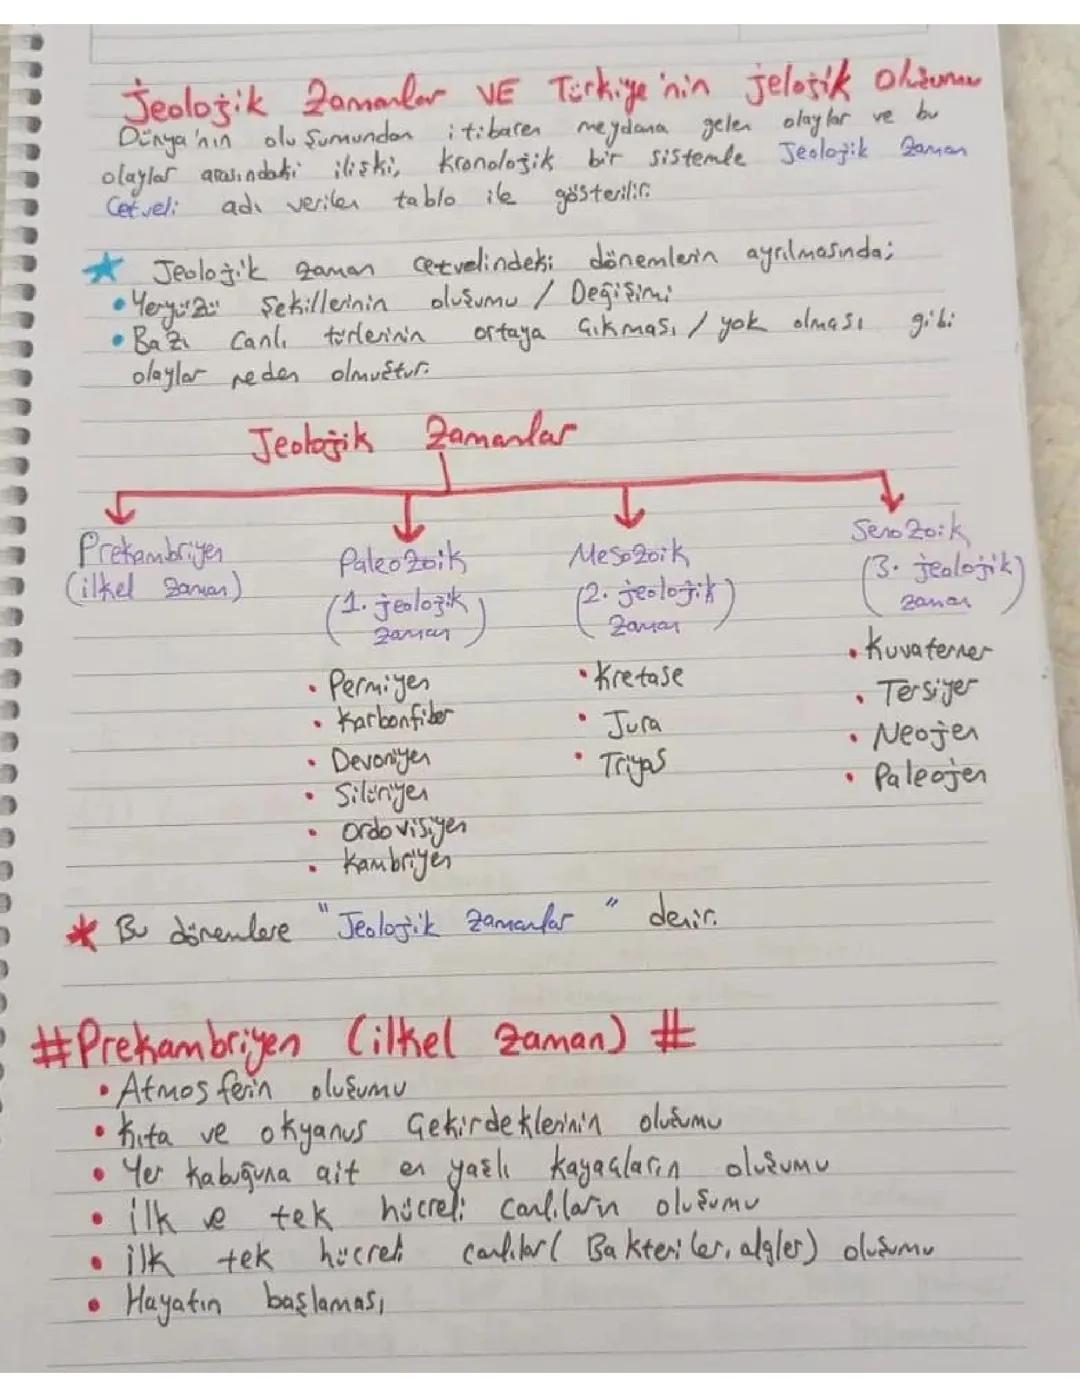 Jeolojik Zamanlar VE Türkiye'nin jeolojik Oluşumu
Dünya'nın oluşumundan itibaren meydana gelen olaylar ve bu
olaylar arasındaki ilişki, kronolojik bir sistemle Jeolojik Zaman
Cetveli adı verilen tablo ile gösterilir.
Jeolojik zaman cetvelindeki dönemlerin ayrılmasında;
• Yeryüzü Şekillerinin oluşumu / Değişimi
• Bazı Canlı türlerinin ortaya Çıkması / yok olması gibi
olaylar neden olmuştur.
Jeolojik Zamanlar
Prekambriyen
(ilkel zaman)
Paleozoik
(1. jeolojik
zaman)
• Permiyen
• Karbonfiber
• Devoniyen
• Silüriyen
• Ordovisiyen
• Kambriyen
Mesozoik
(2. jeolojik
zaman)
• Kretase
• Jura
• Triyas
Senozoik
(3. jeolojik
zaman)
• Kuvaterner
• Tersiyer
• Neojen
• Paleojen
* Bu dönemlere "Jeolojik zamanlar" denir.
#Prekambriyen (ilkel zaman) #
• Atmosferin oluşumu
• Kıta ve okyanus Çekirdeklerinin oluşumu
• Yer kabuğuna ait en yaşlı kayaçların oluşumu
• ilk ve tek hücreli canlıların oluşumu
• ilk tek hücreli canlılar ( Bakteriler, algler) oluşumu
• Hayatın başlaması